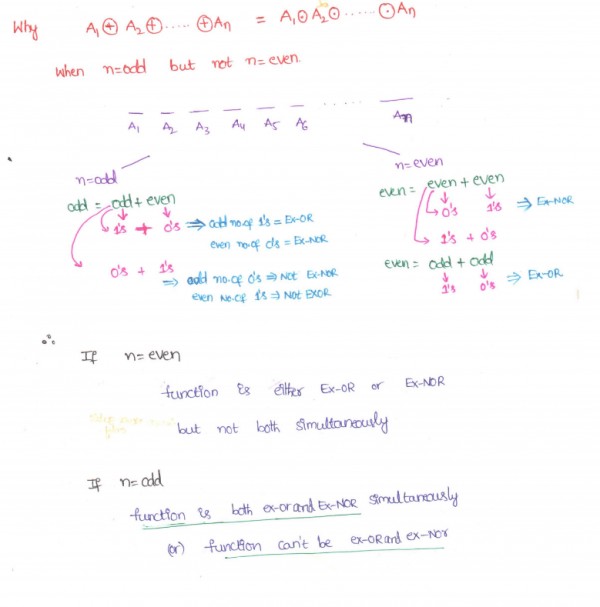 Why A₁⊕ A₂⊕ ..... ⊕An = A₁⊙A₂⊙ ...... ⊙An
When n=odd but not n=even.
A₁ A₂ A₃ A₄ A₅ A₆ ..... An
n=odd
odd = odd + even
1's + 0's ⇒ odd no.of 1's = EX-OR
even no.of 0's = EX-NOR
0's + 1's
⇒ odd no.of 0's ⇒ Not EX-NOR
even No.of 1's ⇒ Not EXOR
n=even
even = even + even
0's 1's ⇒ EX-NOR
1's + 0's
even = odd + odd
1's 0's ⇒ EX-OR
∴
If n=even
function is either EX-OR or EX-NOR
but not both simultaneously
If n=odd
function is both ex-or and EX-NOR simultaneously
(or) function can't be ex-OR and ex-Nor